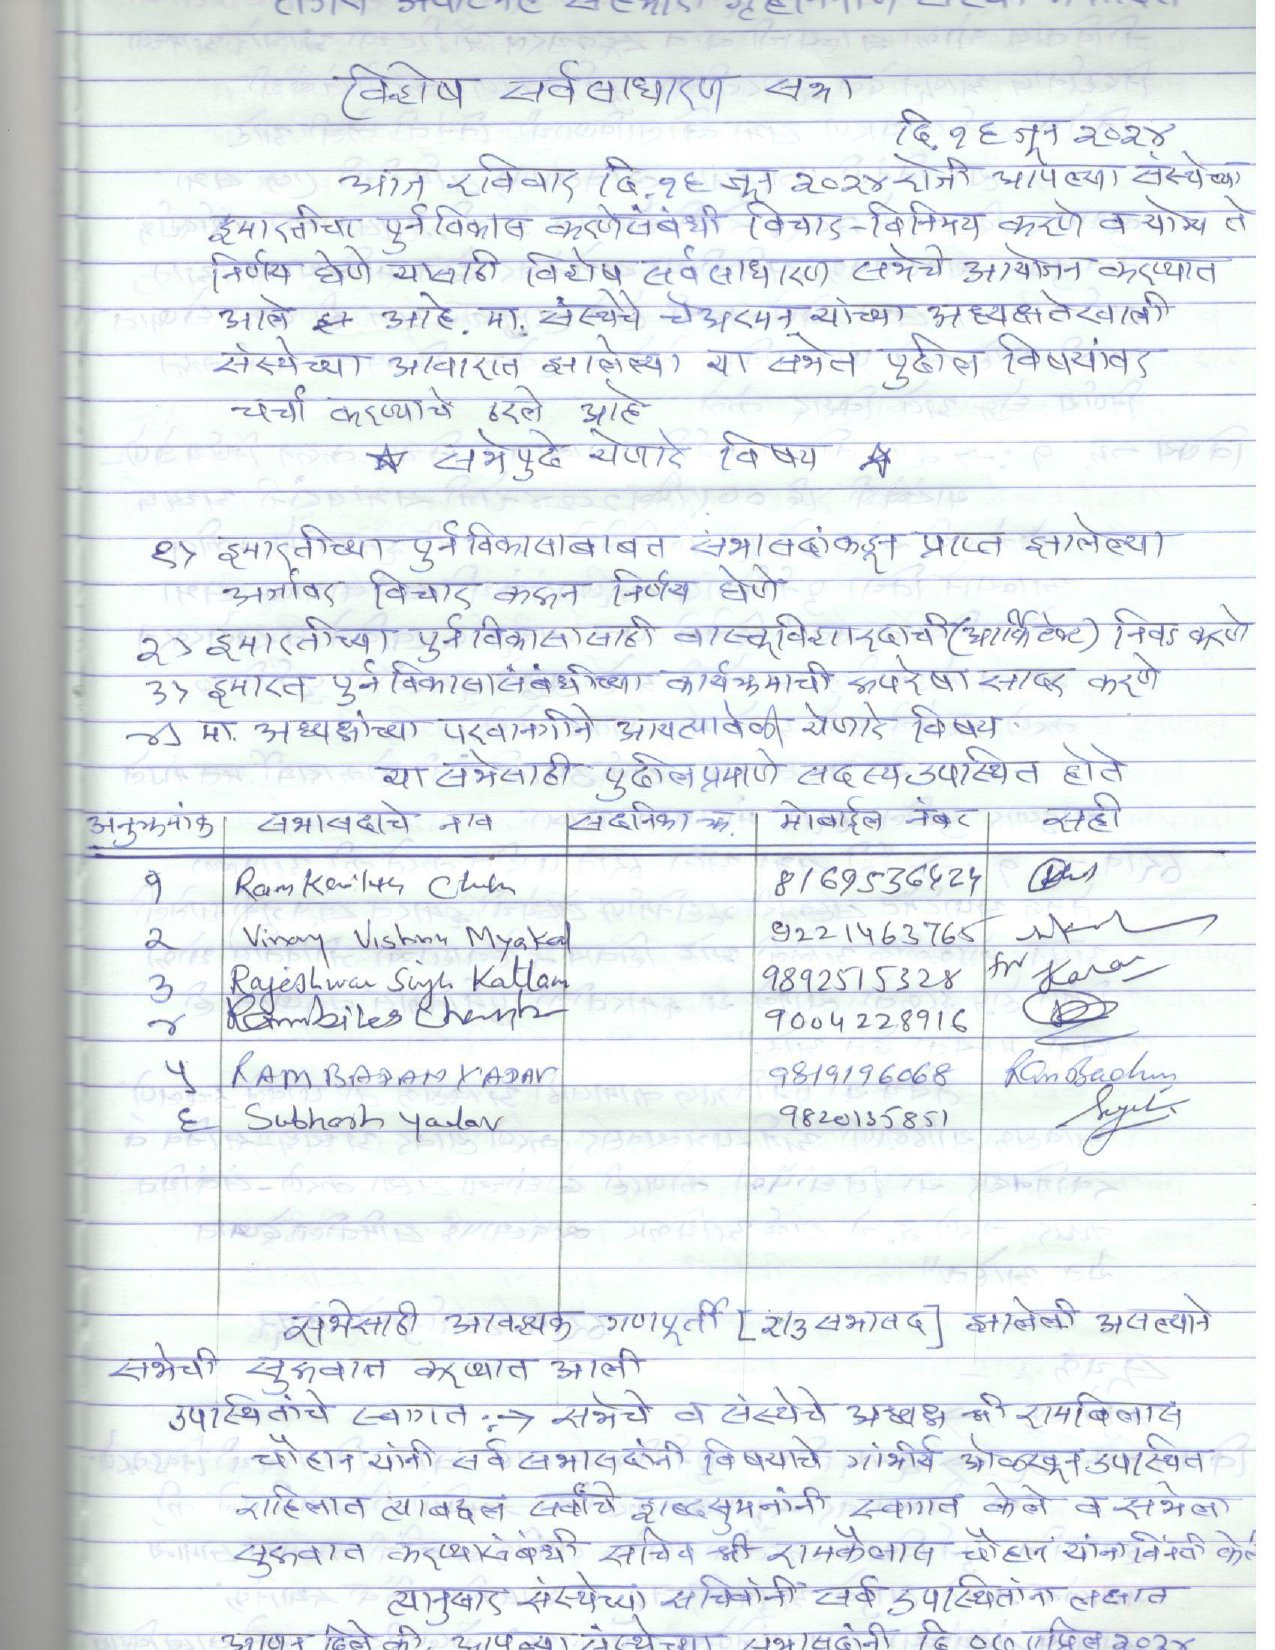 विशेष सर्वसाधारण सभा
दि. १६ जून २०२४
आज रविवार दि. १६ जून २०२४ रोजी आपल्या संस्थेच्या
इमारतीचा पुर्नविकास करणेसंबंधी विचार-विनिमय करणे व योग्य ते
निर्णय घेणे यासाठी विशेष सर्वसाधारण सभेचे आयोजन करण्यात
आले आहे. मा. संस्थेचे चेअरमन यांच्या अध्यक्षतेखाली
संस्थेच्या आवारात झालेल्या या सभेत पुढील विषयांवर
चर्चा करण्याचे ठरले आहे
☆ सभेपुढे येणारे विषय ☆
१> इमारतीच्या पुर्नविकासाबाबत सभासदांकडून प्राप्त झालेल्या
अर्जावर विचार करून निर्णय घेणे
२> इमारतीच्या पुर्नविकासासाठी वास्तूविशारदाची (आर्किटेक्ट) निवड करणे
३> इमारत पुर्नविकासासंबंधीच्या कार्यक्रमाची रूपरेषा सादर करणे
४> मा. अध्यक्षांच्या परवानगीने आयत्यावेळी येणारे विषय.
या सभेसाठी पुढीलप्रमाणे सदस्य उपस्थित होते
अनुक्रमांक सभासदाचे नाव सदनिका क्र. मोबाईल नंबर सही
१ Ramkailas 8169536424
२ Vinay Vishnu Myakal 9221463765
३ Rajeshwar Singh Katlam 9892515328
४ Rambilas Chauhan 9004228916
५ RAM BADAN YADAV 9819196068 RamBadan
६ Subhash Yadav 9820135851
सभेसाठी आवश्यक गणपूर्ती [२/३ सभासद] झालेली असल्याने
सभेची सुरुवात करण्यात आली
उपस्थितांचे स्वागत :→ सभेचे व संस्थेचे अध्यक्ष श्री रामबिलास
चौहान यांनी सर्व सभासदांनी विषयाचे गांभीर्य ओळखून उपस्थित
राहिलात त्याबद्दल सर्वांचे शब्दसुमनांनी स्वागत केले व सभेला
सुरुवात करण्यासंबंधी सचिव श्री रामकैलास चौहान यांना विनंती केली
त्यानुसार संस्थेच्या सचिवांनी सर्व उपस्थितांना लक्षात
आणून दिले की, आपल्या संस्थेच्या सभासदांनी दि